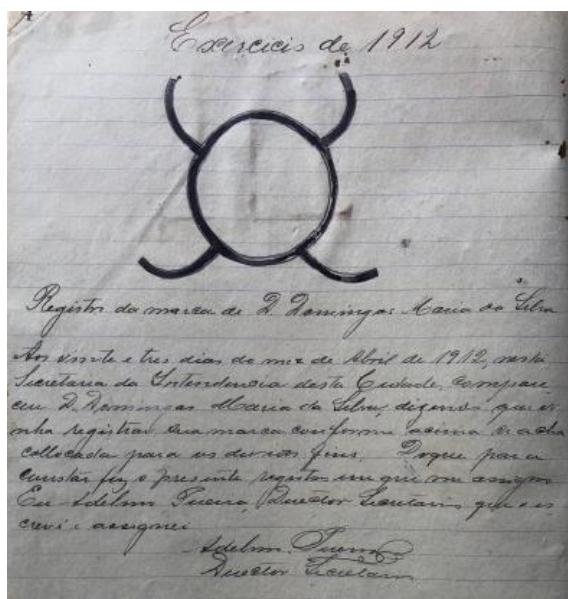 Exercicis de 1912
Registro da marca de D. Domingas Maria da Silva
Aos vinte e tres dias do mez de Abril de 1912, nesta
Secretaria da Intendencia desta Cidade, compare
ceu D. Domingas Maria da Silva, dizendo que vi
nha registrar sua marca conforme acima se acha
collocada para os devidos fins. Do que para
constar fiz o presente registro em que me assigno
Eu Adelino, Director Secretario que o es
crevi e assignei
Adelino
Director Secretario